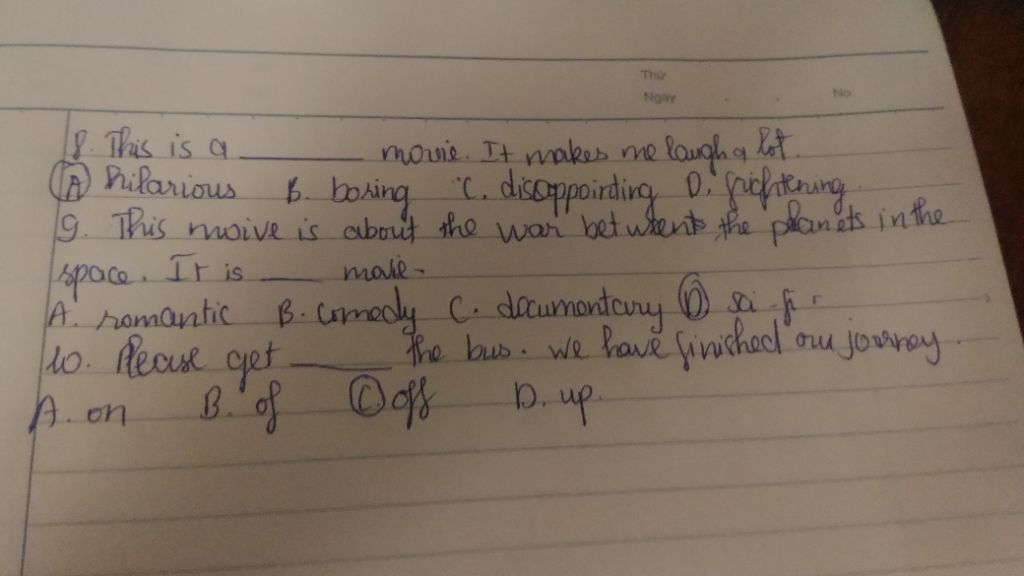 Thứ
Ngày No
8. This is a ______ movie. It makes me laugh a lot.
A hilarious B. boring C. disappointing D. frightening.
9. This moive is about the war between the planets in the
space. It is ____ movie.
A. romantic B. comedy C. documentary D sci-fi
10. Please get ______ the bus. We have finished our journey.
A. on B. of C off D. up.